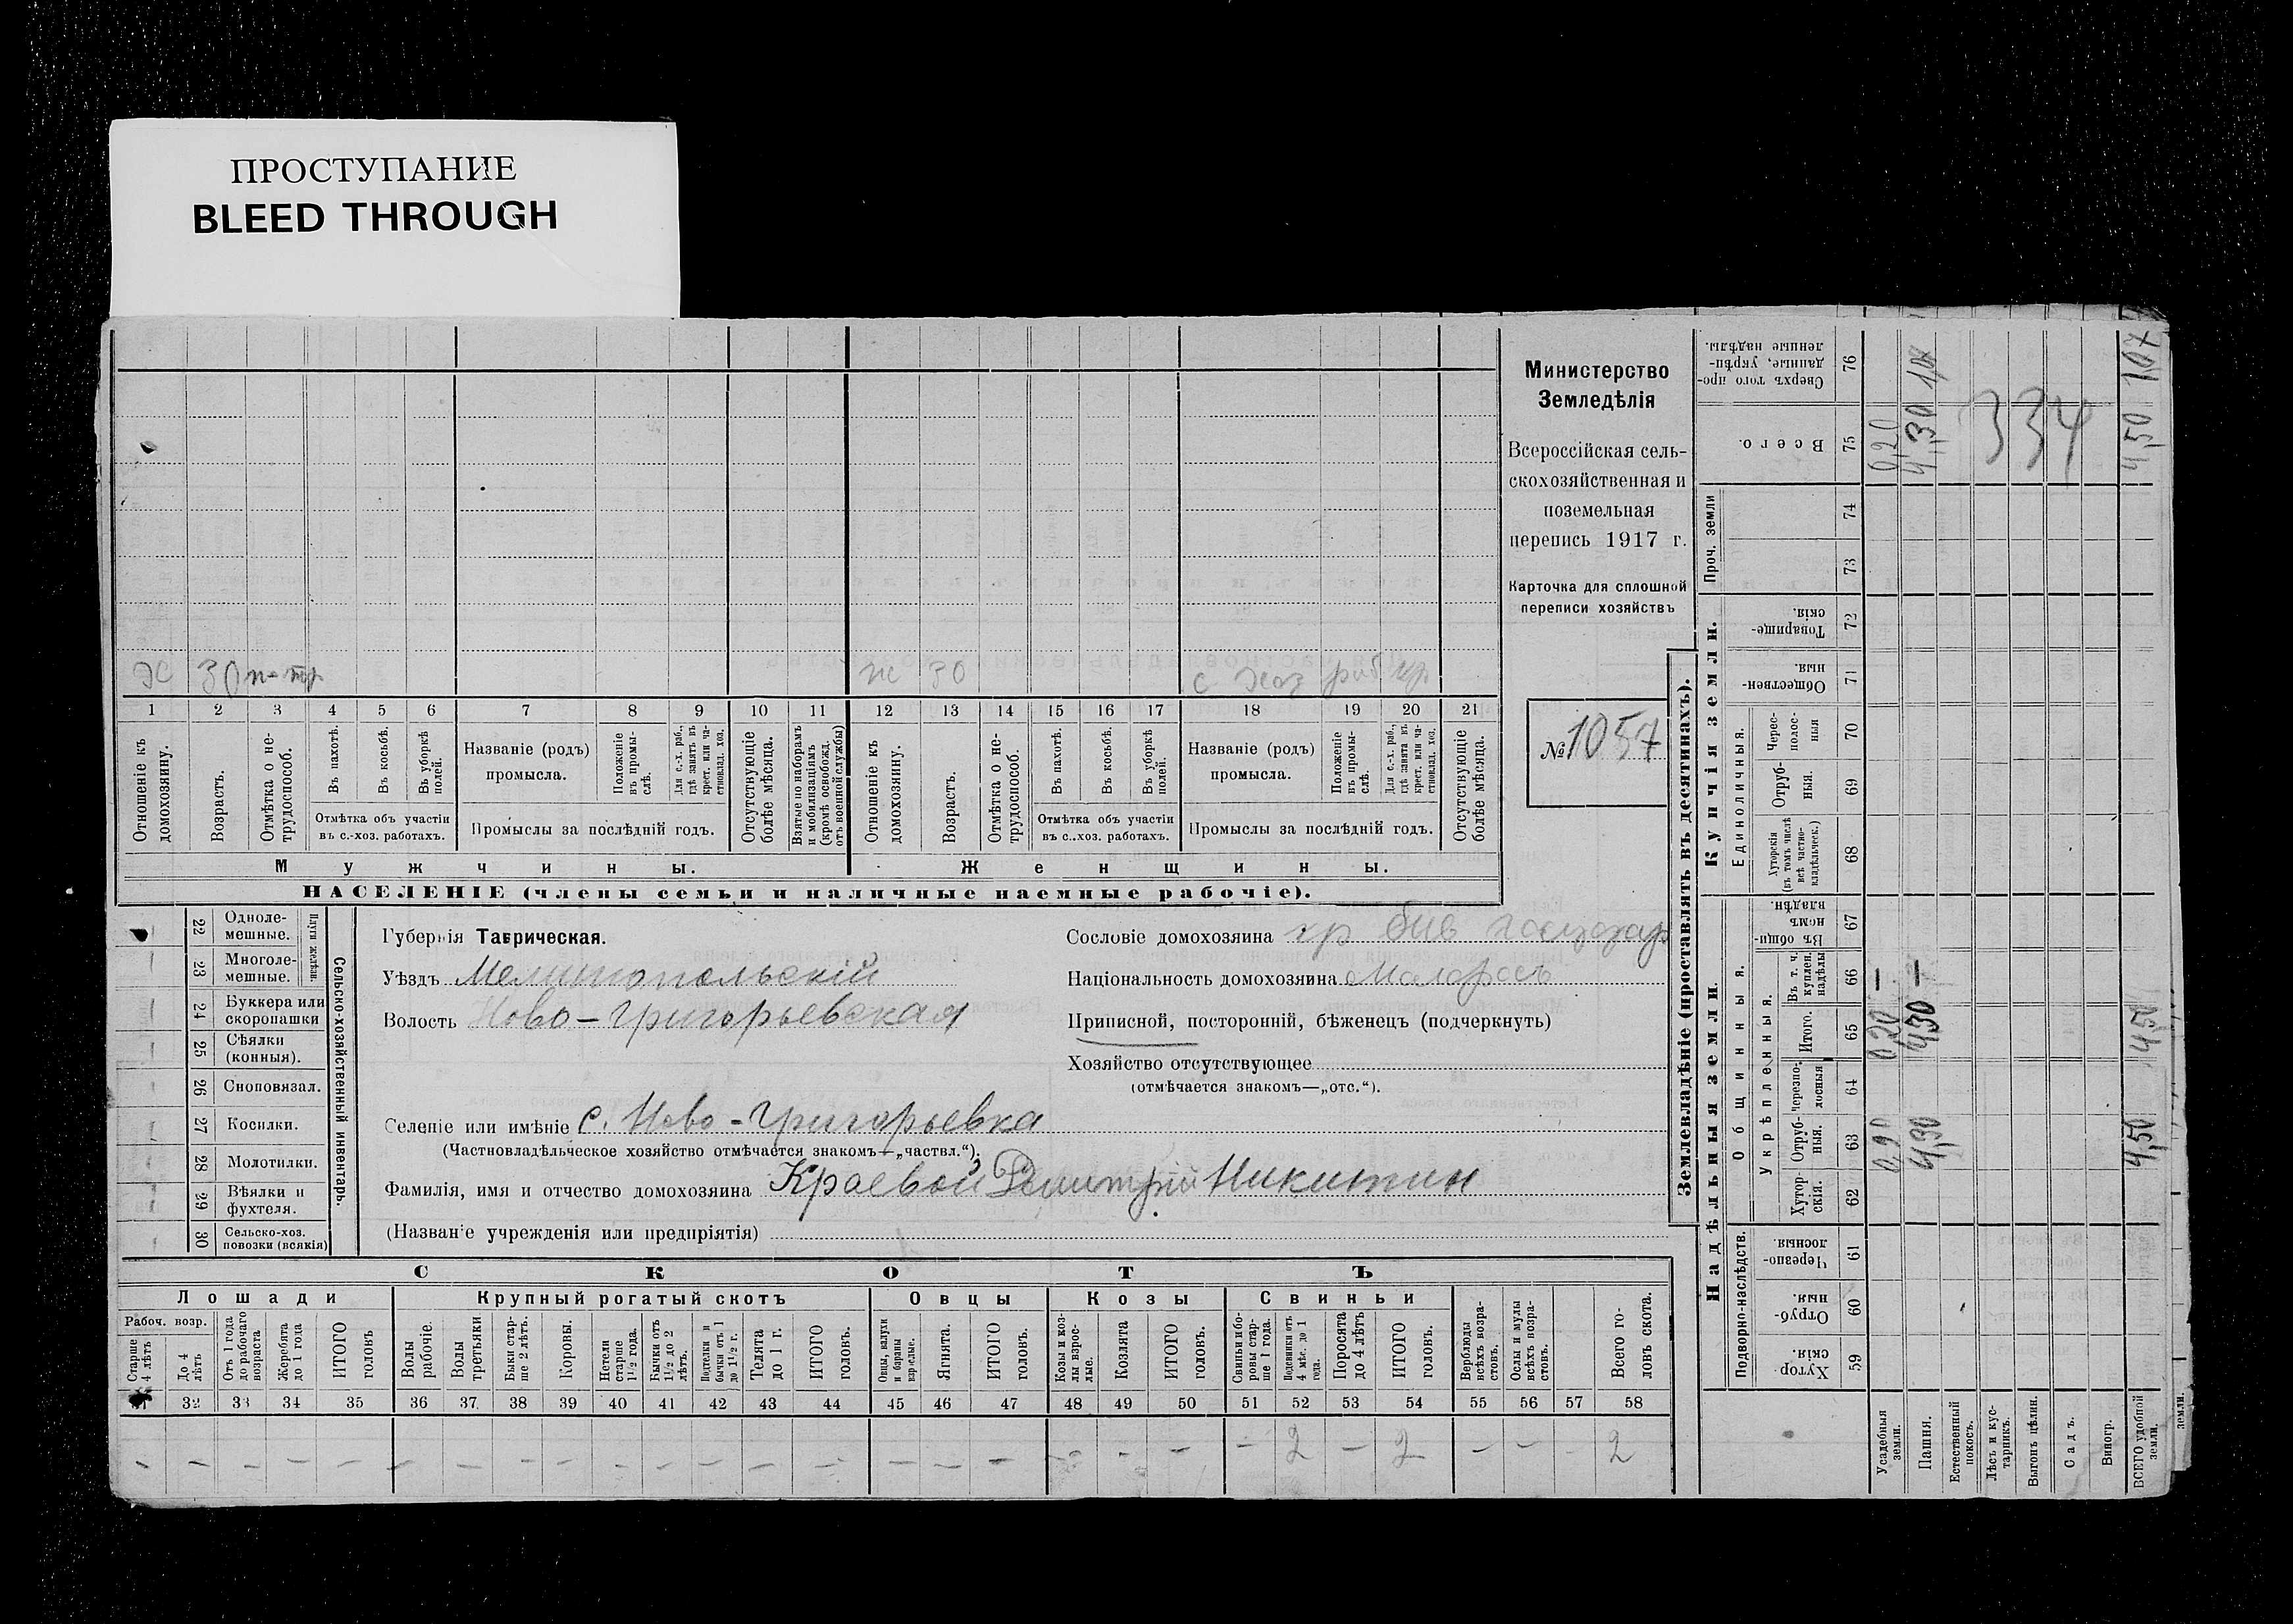 ПРОСТУПАНИЕ
BLEED THROUGH
30 30
1 2 3 4 5 6 7 8 9 10 11 12 13 14 15 16 17 18 19 20 21
Отношеніе къ домохозяину.
Возрастъ.
Отмѣтка о не-
трудоспособ.
Въ пахотѣ.
Въ косьбѣ.
Въ уборкѣ
полей.
Отмѣтка объ участіи
въ с.-хоз. работахъ.
Названіе (родъ)
промысла.
Положеніе
въ промы-
слѣ.
Для с.-х. раб.,
гдѣ занятъ въ
крест. или ча-
стновлад. хоз.
Промыслы за послѣдній годъ.
Отсутствующіе
болѣе мѣсяца.
Взятые по наборамъ
и мобилизаціямъ
(кромѣ освобожд.
отъ военной службы)
Отношеніе къ
домохозяину.
Возрастъ.
Отмѣтка о не-
трудоспособ.
Въ пахотѣ.
Въ косьбѣ.
Въ уборкѣ
полей.
Отмѣтка объ участіи
въ с.-хоз. работахъ.
Названіе (родъ)
промысла.
Положеніе
въ промы-
слѣ.
Для с.-х. раб.,
гдѣ занята въ
крест. или ча-
стновлад. хоз.
Промыслы за послѣдній годъ.
Отсутствующіе
болѣе мѣсяца.
Мужчины. Женщины.
НАСЕЛЕНІЕ (члены семьи и наличные наемные рабочіе).
Министерство
Земледѣлія
Всероссійская сель-
скохозяйственная и
поземельная
перепись 1917 г.
Карточка для сплошной
переписи хозяйствъ
№ 1057
Сельско-хозяйственный инвентарь.
22 Одноле-
мешные.
23 Многоле-
мешные.
24 Буккера или
скоропашки
25 Сѣялки
(конныя).
26 Сноповязал.
27 Косилки.
28 Молотилки.
29 Вѣялки и
фухтеля.
30 Сельско-хоз.
повозки (всякія)
Губернія Таврическая.
Уѣздъ Мелитопольскій
Волость Ново-Григорьевская
Селеніе или имѣніе с. Ново-Григорьевка
(Частновладѣльческое хозяйство отмѣчается знакомъ—„частвл.“).
Фамилія, имя и отчество домохозяина Краевой Димитрій Никитин
(Названіе учрежденія или предпріятія)
Сословіе домохозяина кр быв
Національность домохозяина Малоросъ
Приписной, посторонній, бѣженецъ (подчеркнуть)
Хозяйство отсутствующее
(отмѣчается знакомъ—„отс.“).
СКОТЪ
Лошади
Крупный рогатый скотъ
Овцы
Козы
Свиньи
Рабоч. возр.
Старше
4 лѣтъ
До 4
лѣтъ
Отъ 1 года
до рабочаго
возраста
Жеребята
до 1 года
ИТОГО
головъ
Волы
рабочіе.
Волы
третьяки
Быки стар-
ше 2 лѣтъ.
Коровы.
Нетели
старше
1½ года.
Бычки отъ
1½ до 2
лѣтъ.
Подтелки и
бычки отъ 1
до 1½ г.
Телята
до 1 г.
ИТОГО
головъ.
Овцы, валухи
и бараны
взрослые.
Ягнята.
ИТОГО
головъ.
Козы и коз-
лы взрос-
лые.
Козлята
ИТОГО
головъ.
Свиньи и бо-
ровы стар-
ше 1 года.
Подсвинки отъ
4 мѣс. до 1
года.
Поросята
до 4 лѣтъ
ИТОГО
головъ.
Верблюды
всѣхъ возра-
стовъ.
Ослы и мулы
всѣхъ возра-
стовъ.
Всего го-
ловъ скота.
32 33 34 35 36 37 38 39 40 41 42 43 44 45 46 47 48 49 50 51 52 53 54 55 56 57 58
- - - - - - - - - - - - - - - - - - - - - 2 - 2 - - - 2
Землевладѣніе (проставлять въ десятинахъ).
Надѣльныя земли.
Купчія земли.
Проч. земли
Подворно-наслѣдств.
Общинныя.
Укрѣпленныя.
Единоличныя.
Хутор-
скія. 59
Отруб-
ныя. 60
Черезпо-
лосныя 61
Хутор-
скія. 62
Отруб-
ныя. 63
черезпо-
лосныя 64
Итого. 65
Въ т. ч.
куплен.
надѣлы 66
Въ общин-
номъ
владѣн. 67
Хуторскія
(въ томъ числѣ
всѣ частно-
владѣльческ.) 68
Отруб-
ныя. 69
Черес-
полос-
ныя 70
Обществен-
ныя. 71
Товарище-
скія. 72
73 74
Всего. 75
Сверхъ того про-
данные, укрѣп-
ленные надѣлы. 76
Усадебныя
земли. 0,20 — 0,20
Пашня. 4,30 — 4,30
Естественный
покосъ.
Лѣсъ и кус-
тарникъ.
Выгонъ цѣлин.
Садъ.
Виногр.
ВСЕГО удобной
земли. 4,50 4,50 4,50 107
земли.
334